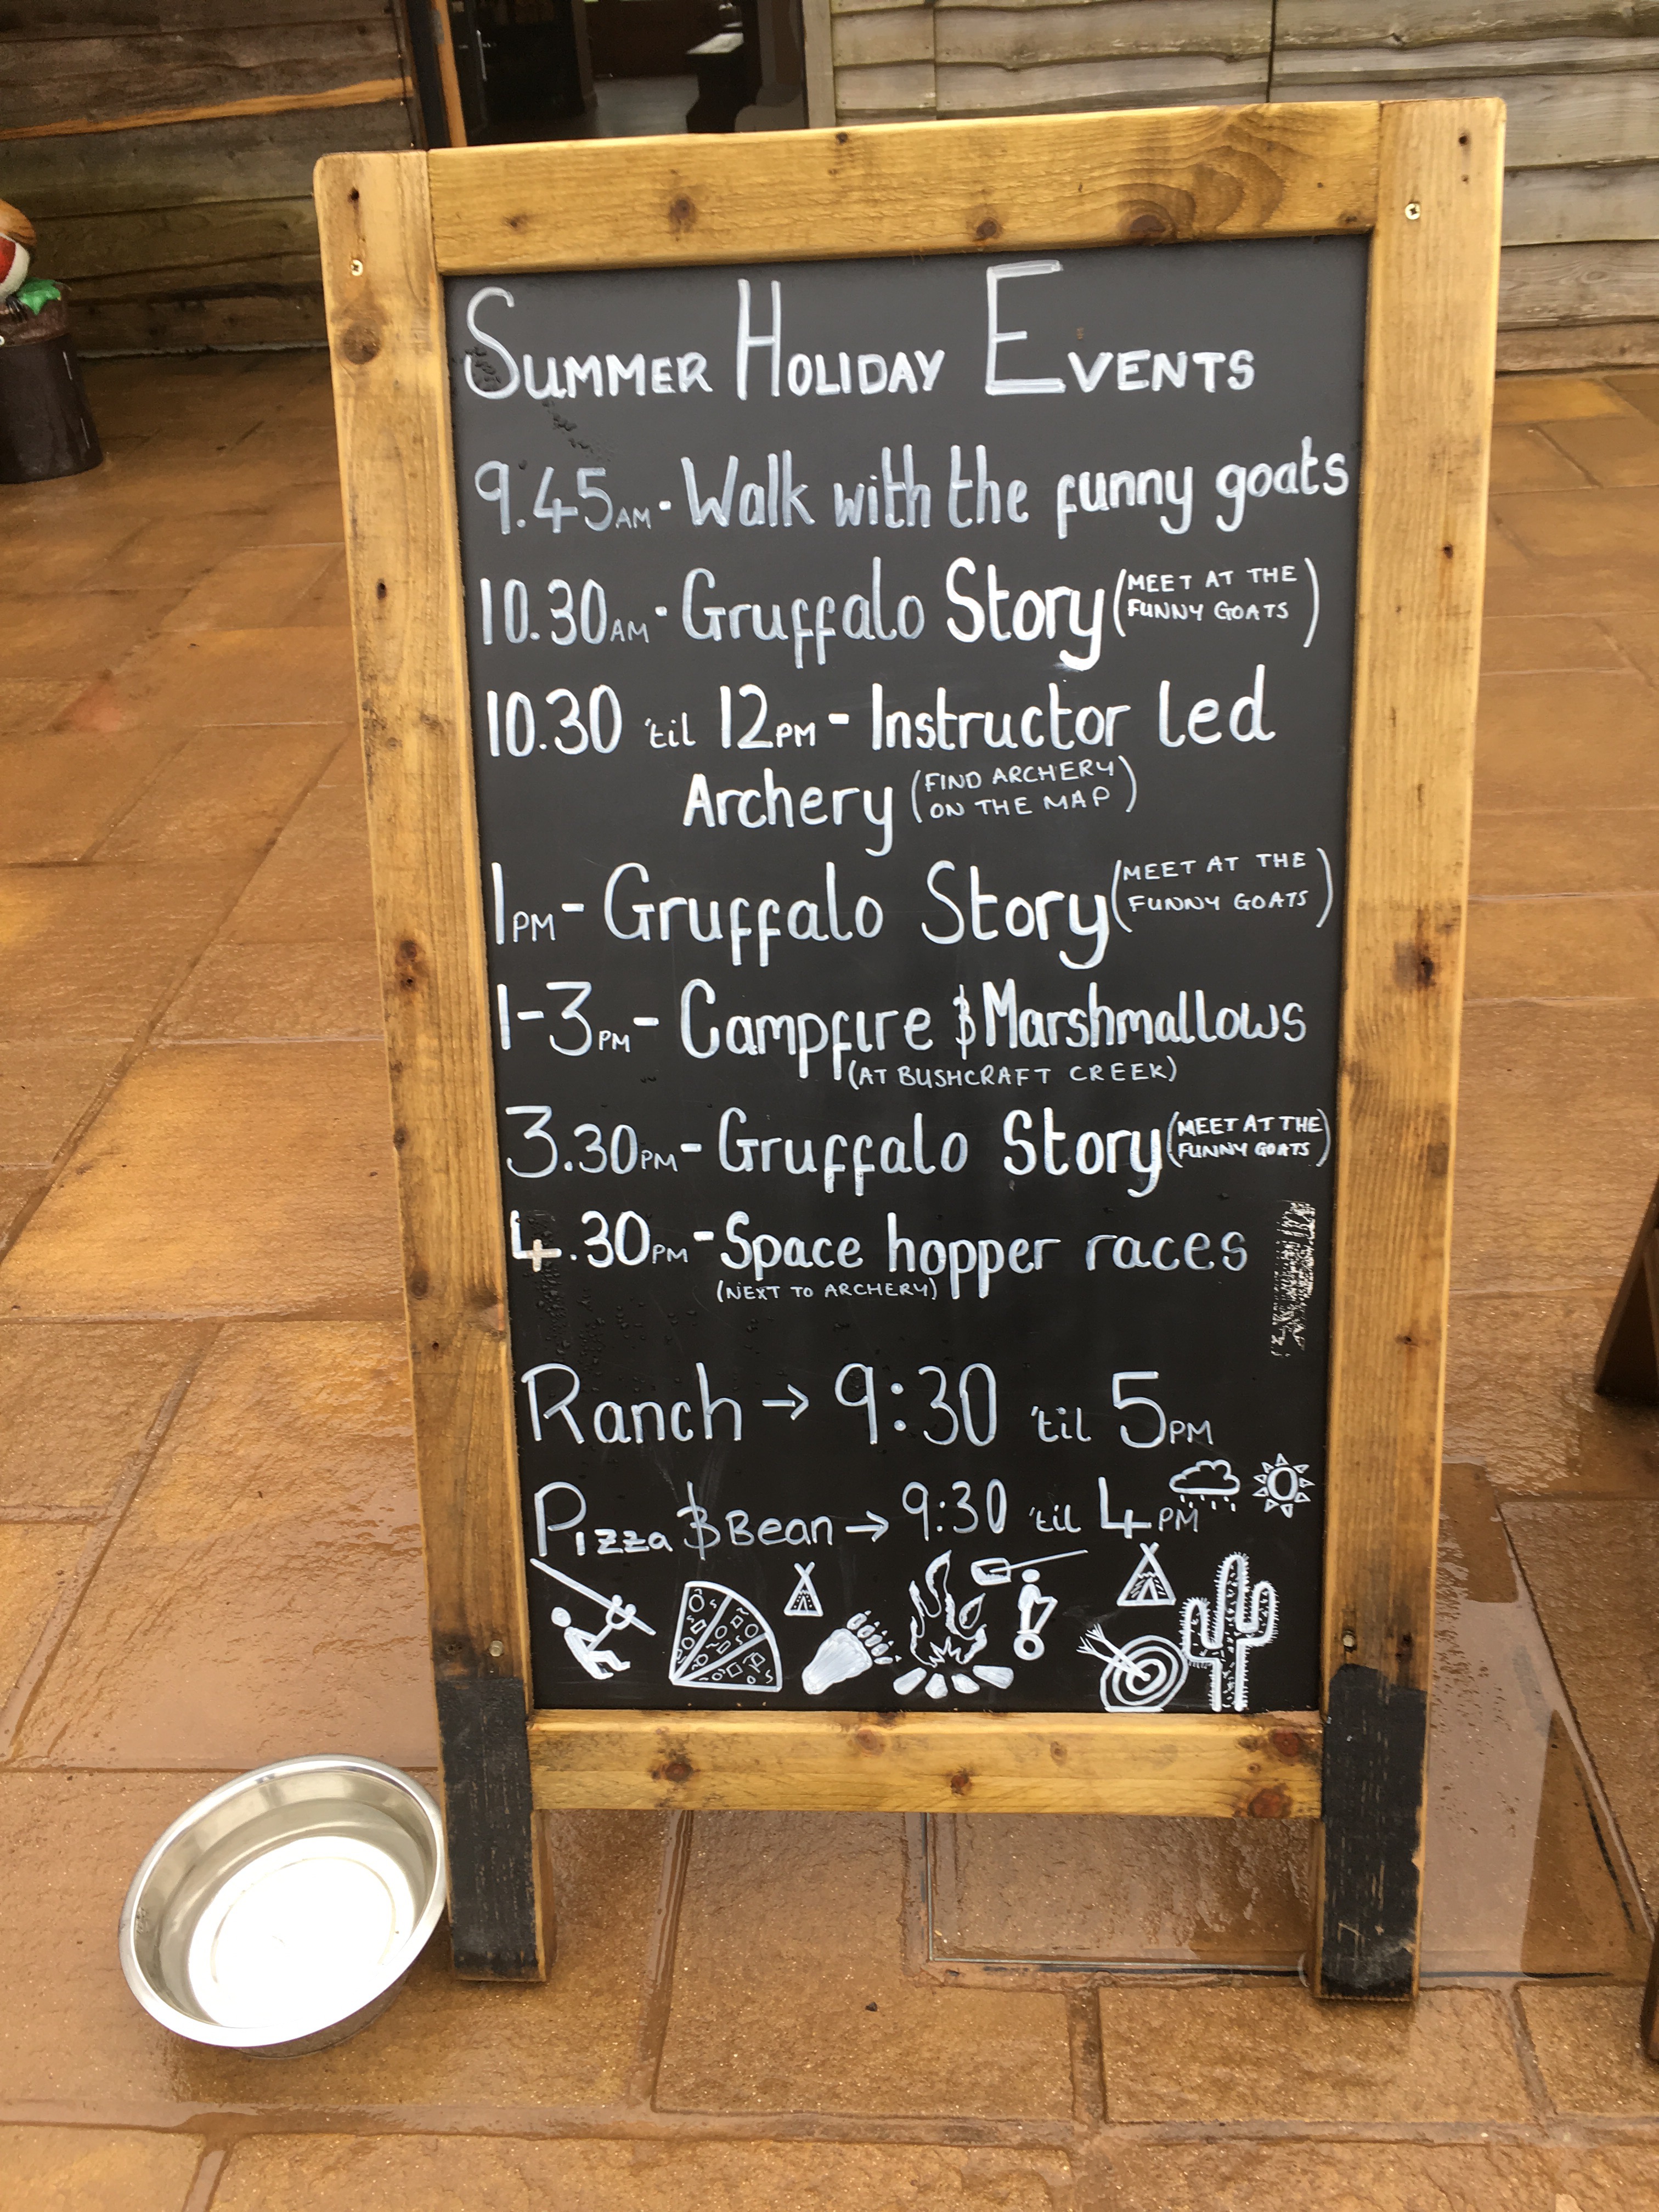 SUMMER HOLIDAY EVENTS
9.45AM - Walk with the funny goats
10.30AM - Gruffalo Story (MEET AT THE FUNNY GOATS)
10.30 'til 12PM - Instructor led
Archery (FIND ARCHERY ON THE MAP)
1PM - Gruffalo Story (MEET AT THE FUNNY GOATS)
1-3PM - Campfire & Marshmallows
(AT BUSHCRAFT CREEK)
3.30PM - Gruffalo Story (MEET AT THE FUNNY GOATS)
4.30PM - Space hopper races
(NEXT TO ARCHERY)
Ranch → 9:30 'til 5PM
Pizza & Bean → 9:30 'til 4PM